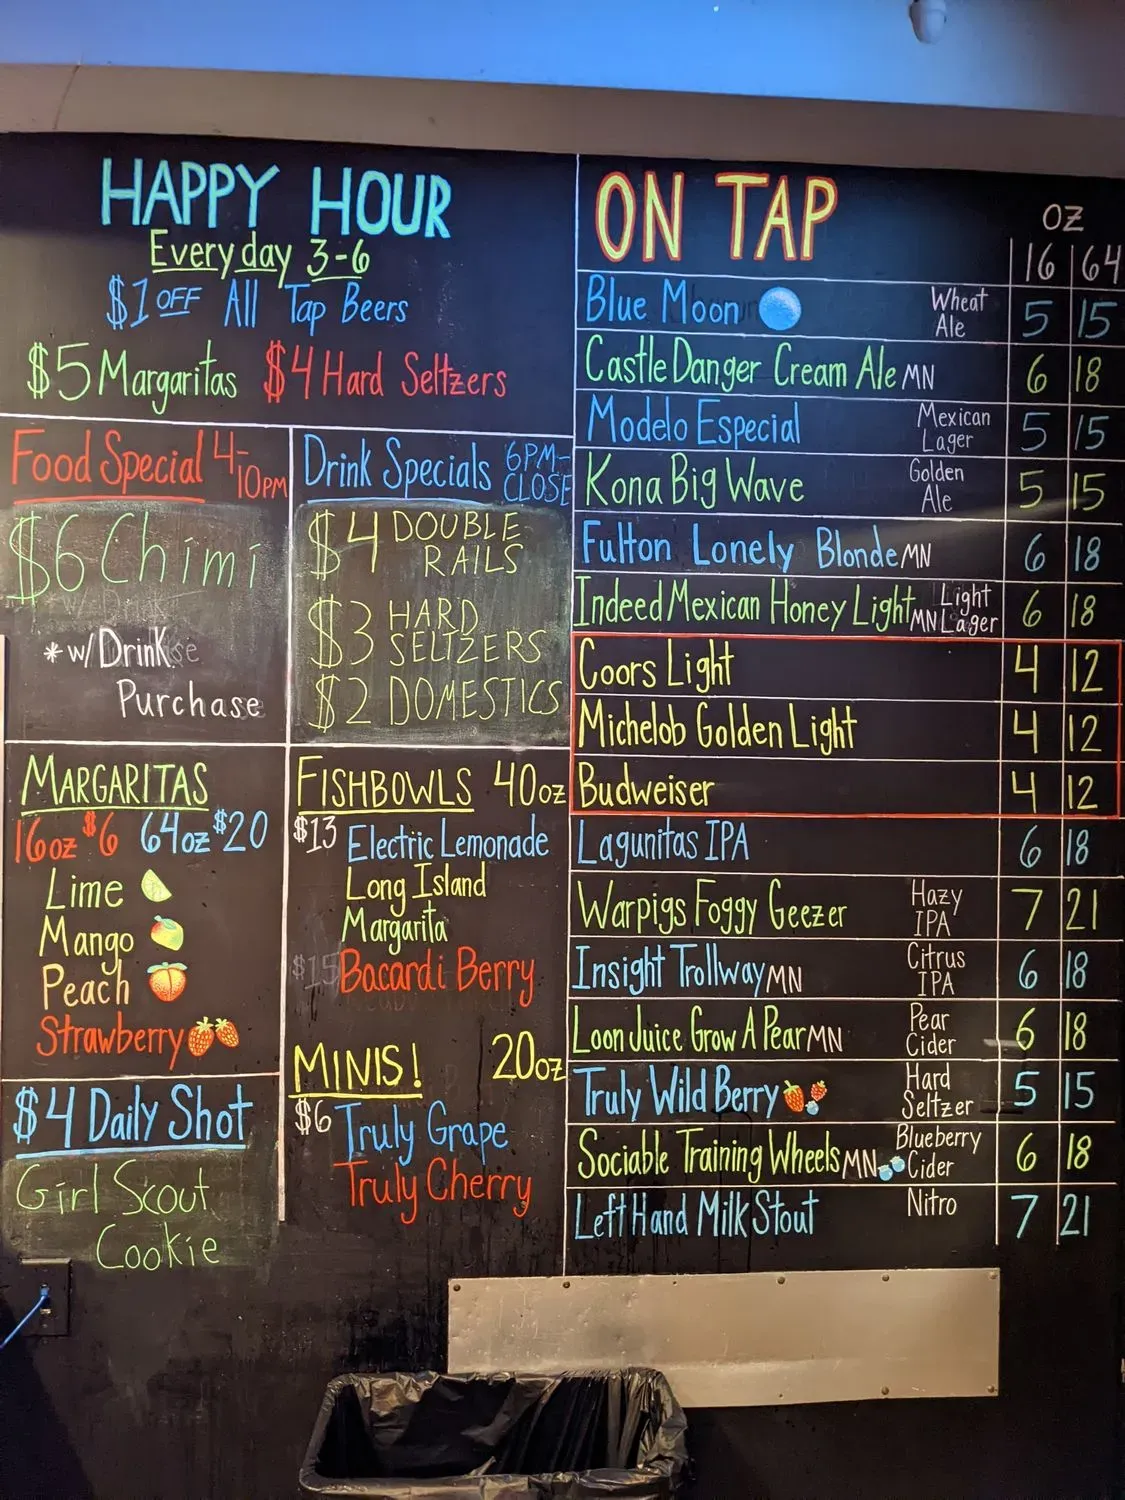 HAPPY HOUR
Everyday 3-6
$1 OFF All Tap Beers
$5 Margaritas $4 Hard Seltzers
Food Special 4-10PM
$6 Chimi
*w/ Drink
Purchase
Drink Specials 6PM-CLOSE
$4 DOUBLE
RAILS
$3 HARD
SELTZERS
$2 DOMESTICS
MARGARITAS
16oz $6 64oz $20
Lime
Mango
Peach
Strawberry
$4 Daily Shot
Girl Scout
Cookie
FISHBOWLS 40oz
$13 Electric Lemonade
Long Island
Margarita
$15 Bacardi Berry
MINIS! 20oz
$6 Truly Grape
Truly Cherry
ON TAP
OZ
16 64
Blue Moon Wheat Ale 5 15
Castle Danger Cream Ale MN 6 18
Modelo Especial Mexican Lager 5 15
Kona Big Wave Golden Ale 5 15
Fulton Lonely Blonde MN 6 18
Indeed Mexican Honey Light MN Light Lager 6 18
Coors Light 4 12
Michelob Golden Light 4 12
Budweiser 4 12
Lagunitas IPA 6 18
Warpigs Foggy Geezer Hazy IPA 7 21
Insight Trollway MN Citrus IPA 6 18
Loon Juice Grow A Pear MN Pear Cider 6 18
Truly Wild Berry Hard Seltzer 5 15
Sociable Training Wheels MN Blueberry Cider 6 18
Left Hand Milk Stout Nitro 7 21